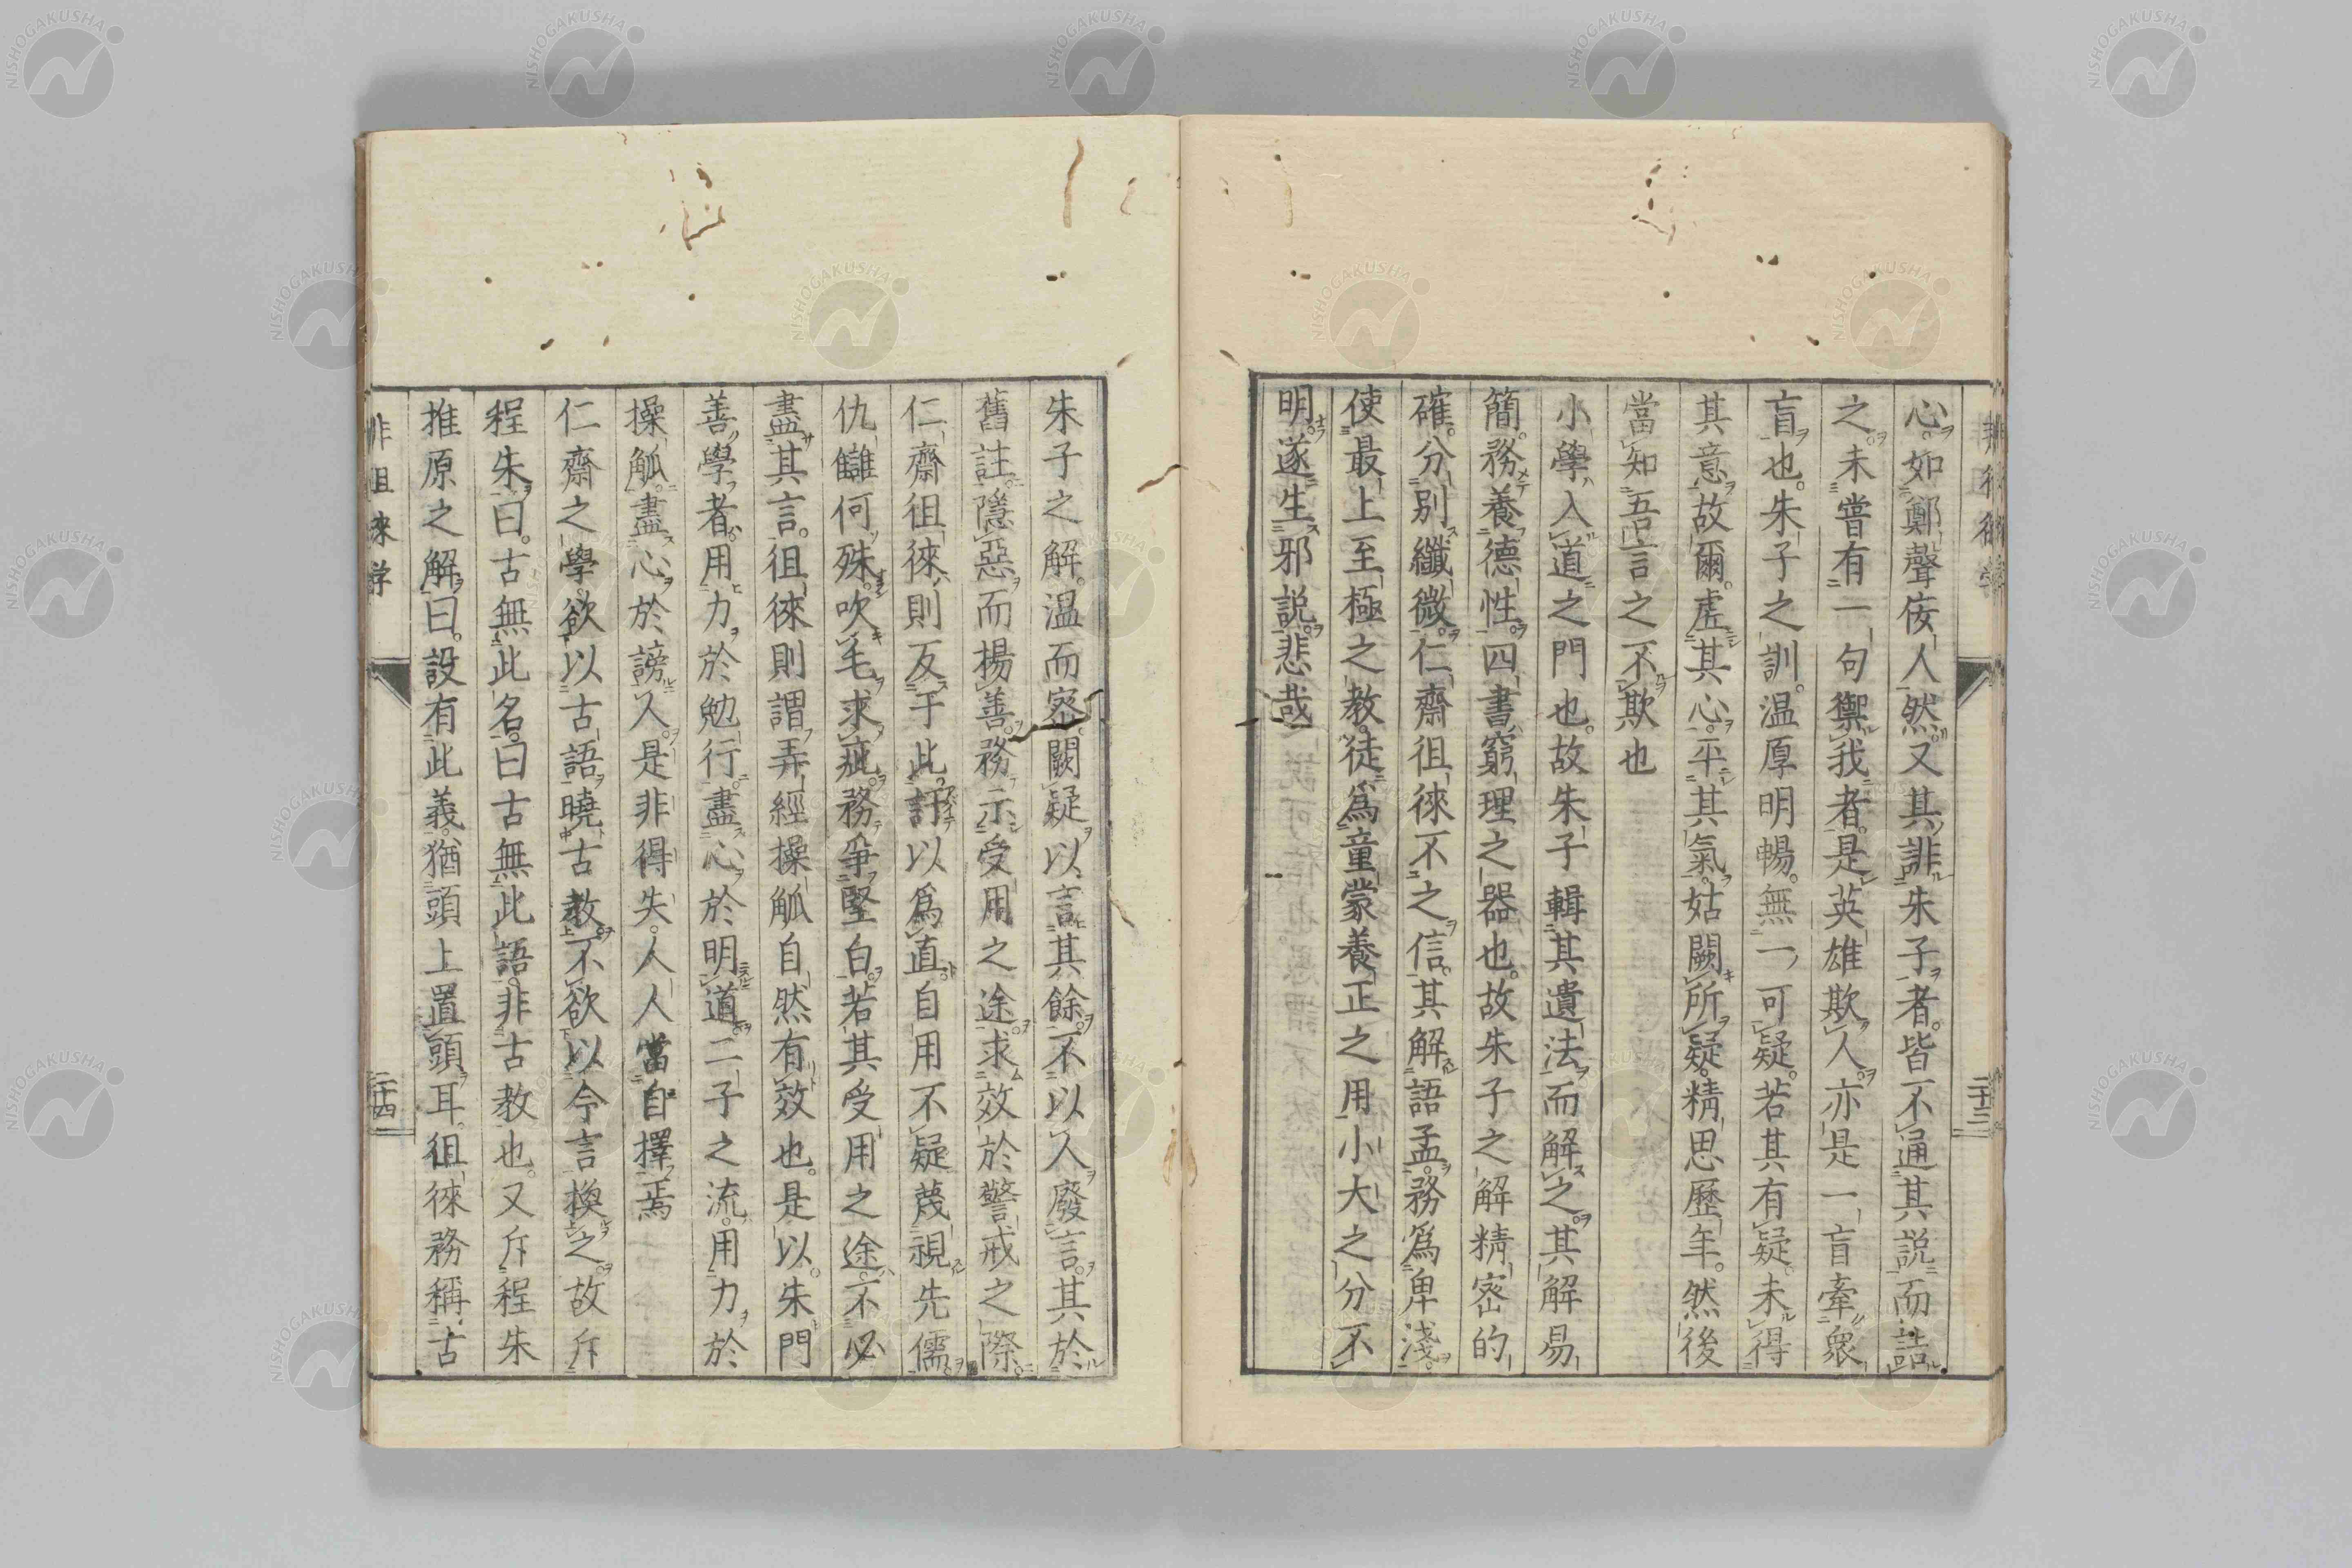 心如鄭聲侫人然又其誹朱子者皆不通其説而誥
之未嘗有一句禦我者是英雄欺人亦是一盲牽衆
盲也朱子之訓温厚明暢無一可疑若其有疑未得
其意故爾虚其心平其氣姑闕所疑精思歷年然後
當知吾言之不欺也
小學入道之門也故朱子輯其遺法而解之其解易
簡務養德性四書窮理之器也故朱子之解精密的
確分別纖微仁齋徂徠不之信其解語孟務爲卑淺
使最上至極之教徒爲童蒙養正之用小大之分不
明遂生邪説悲哉
二十三
朱子之解温而密闕疑以言其餘不以人廢言其於
舊註隱惡而揚善務示受用之途求效於警戒之際
仁齋徂徠則反于此訐以爲直自用不疑蔑視先儒
仇讎何殊吹毛求疵務爭堅白若其受用之途不必
盡其言徂徠則謂弄經操觚自然有效也是以朱門
善學者用力於勉行盡心於明道二子之流用力於
操觚盡心於謗人是非得失人人當自擇焉
仁齋之學欲以古語曉古教不欲以今言換之故斥
程朱曰古無此名曰古無此語非古教也又斥程朱
推原之解曰設有此義猶頭上置頭耳徂徠務稱古
非徂徠学
二十四
NISHOGAKUSHA